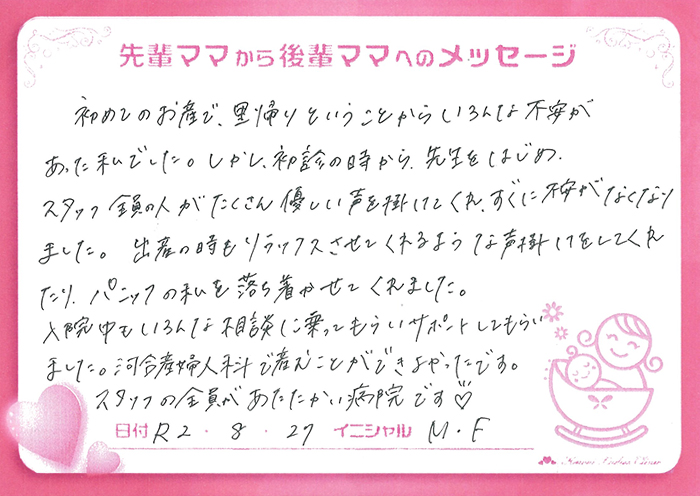 先輩ママから後輩ママへのメッセージ
初めてのお産で、里帰りということからいろんな不安が
あった私でした。しかし、初診の時から、先生をはじめ、
スタッフ全員の人がたくさん優しい声を掛けてくれ、すぐに不安がなくなり
ました。出産の時もリラックスさせてくれるような声掛けをしてくれ
たり、パニックの私を落ち着かせてくれました。
入院中もいろんな相談に乗ってもらいサポートしてもらい
ました。河合産婦人科で産むことができよかったです。
スタッフの全員があたたかい病院です♡
日付 R2・8・27 イニシャル M・F